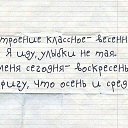 строение классное- весенн
Я иду, улыбки не тая.
меня сегодня- воскресень
ригу, что осень и сред